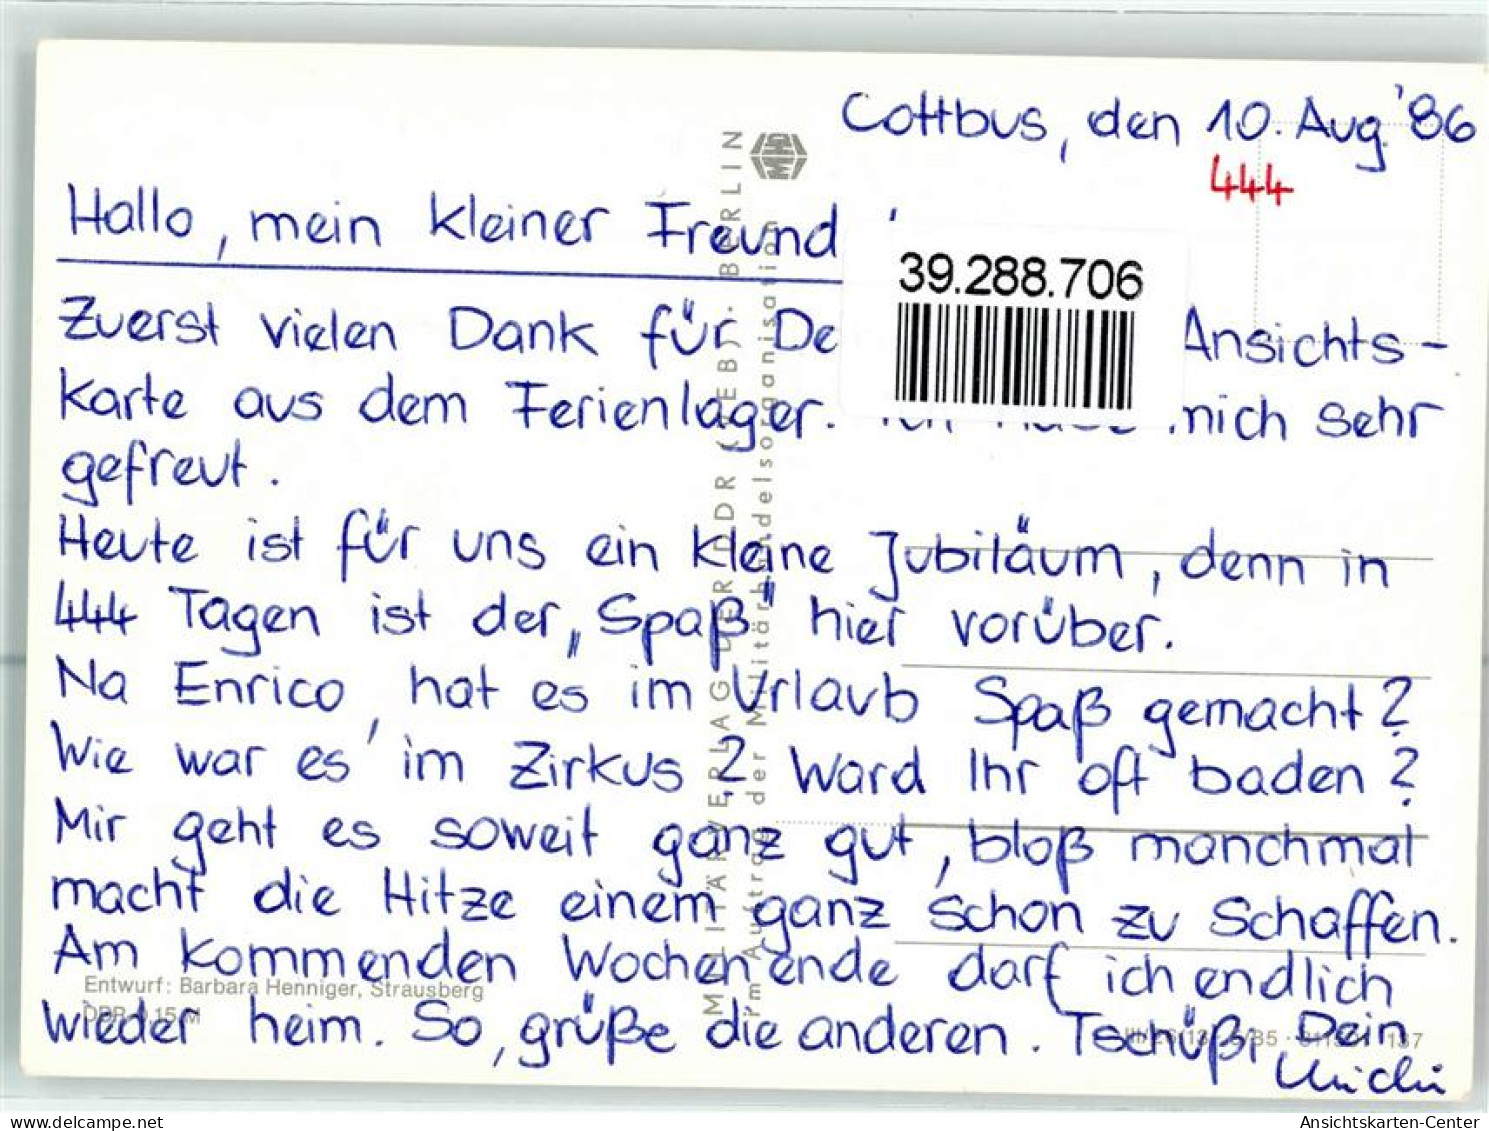 Cottbus, den 10. Aug. '86
444
Hallo, mein kleiner Freund
39.288.706
Zuerst vielen Dank für De Ansichts-
karte aus dem Ferienlager. mich sehr
gefreut.
Heute ist für uns ein kleine Jubiläum, denn in
444 Tagen ist der „Spaß" hier vorüber.
Na Enrico, hat es im Urlaub Spaß gemacht?
Wie war es im Zirkus? Ward Ihr oft baden?
Mir geht es soweit ganz gut, bloß manchmal
macht die Hitze einem ganz schon zu schaffen.
Am kommenden Wochenende darf ich endlich
wieder heim. So, grüße die anderen. Tschüß, Dein
Michi
MILITÄRVERLAG DER DDR (VEB) · BERLIN
im Auftrag der Militärhandelsorganisation
MHO
Entwurf: Barbara Henniger, Strausberg
DDR 0,15 M
137
www.delcampe.net
Ansichtskarten-Center